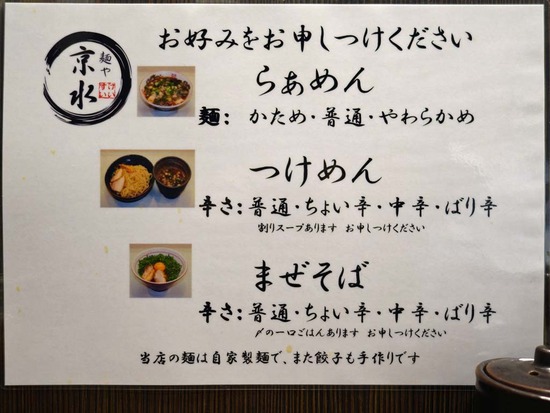 麺や
京水
お好みをお申しつけください
らぁめん
麺：かため・普通・やわらかめ
つけめん
辛さ：普通・ちょい辛・中辛・ばり辛
割りスープあります　お申しつけください
まぜそば
辛さ：普通・ちょい辛・中辛・ばり辛
〆の一口ごはんあります　お申しつけください
当店の麺は自家製麺で、また餃子も手作りです